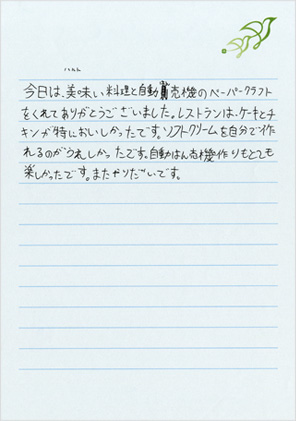 今日は、美味い料理と自動買売機のペーパークラフト
をくれてありがとうございました。レストランは、ケーキとチ
キンが特においしかったです。ソフトクリームを自分で作
れるのがうれしかったです。自動はん売機作りもとても
楽しかったです。またやりたいです。